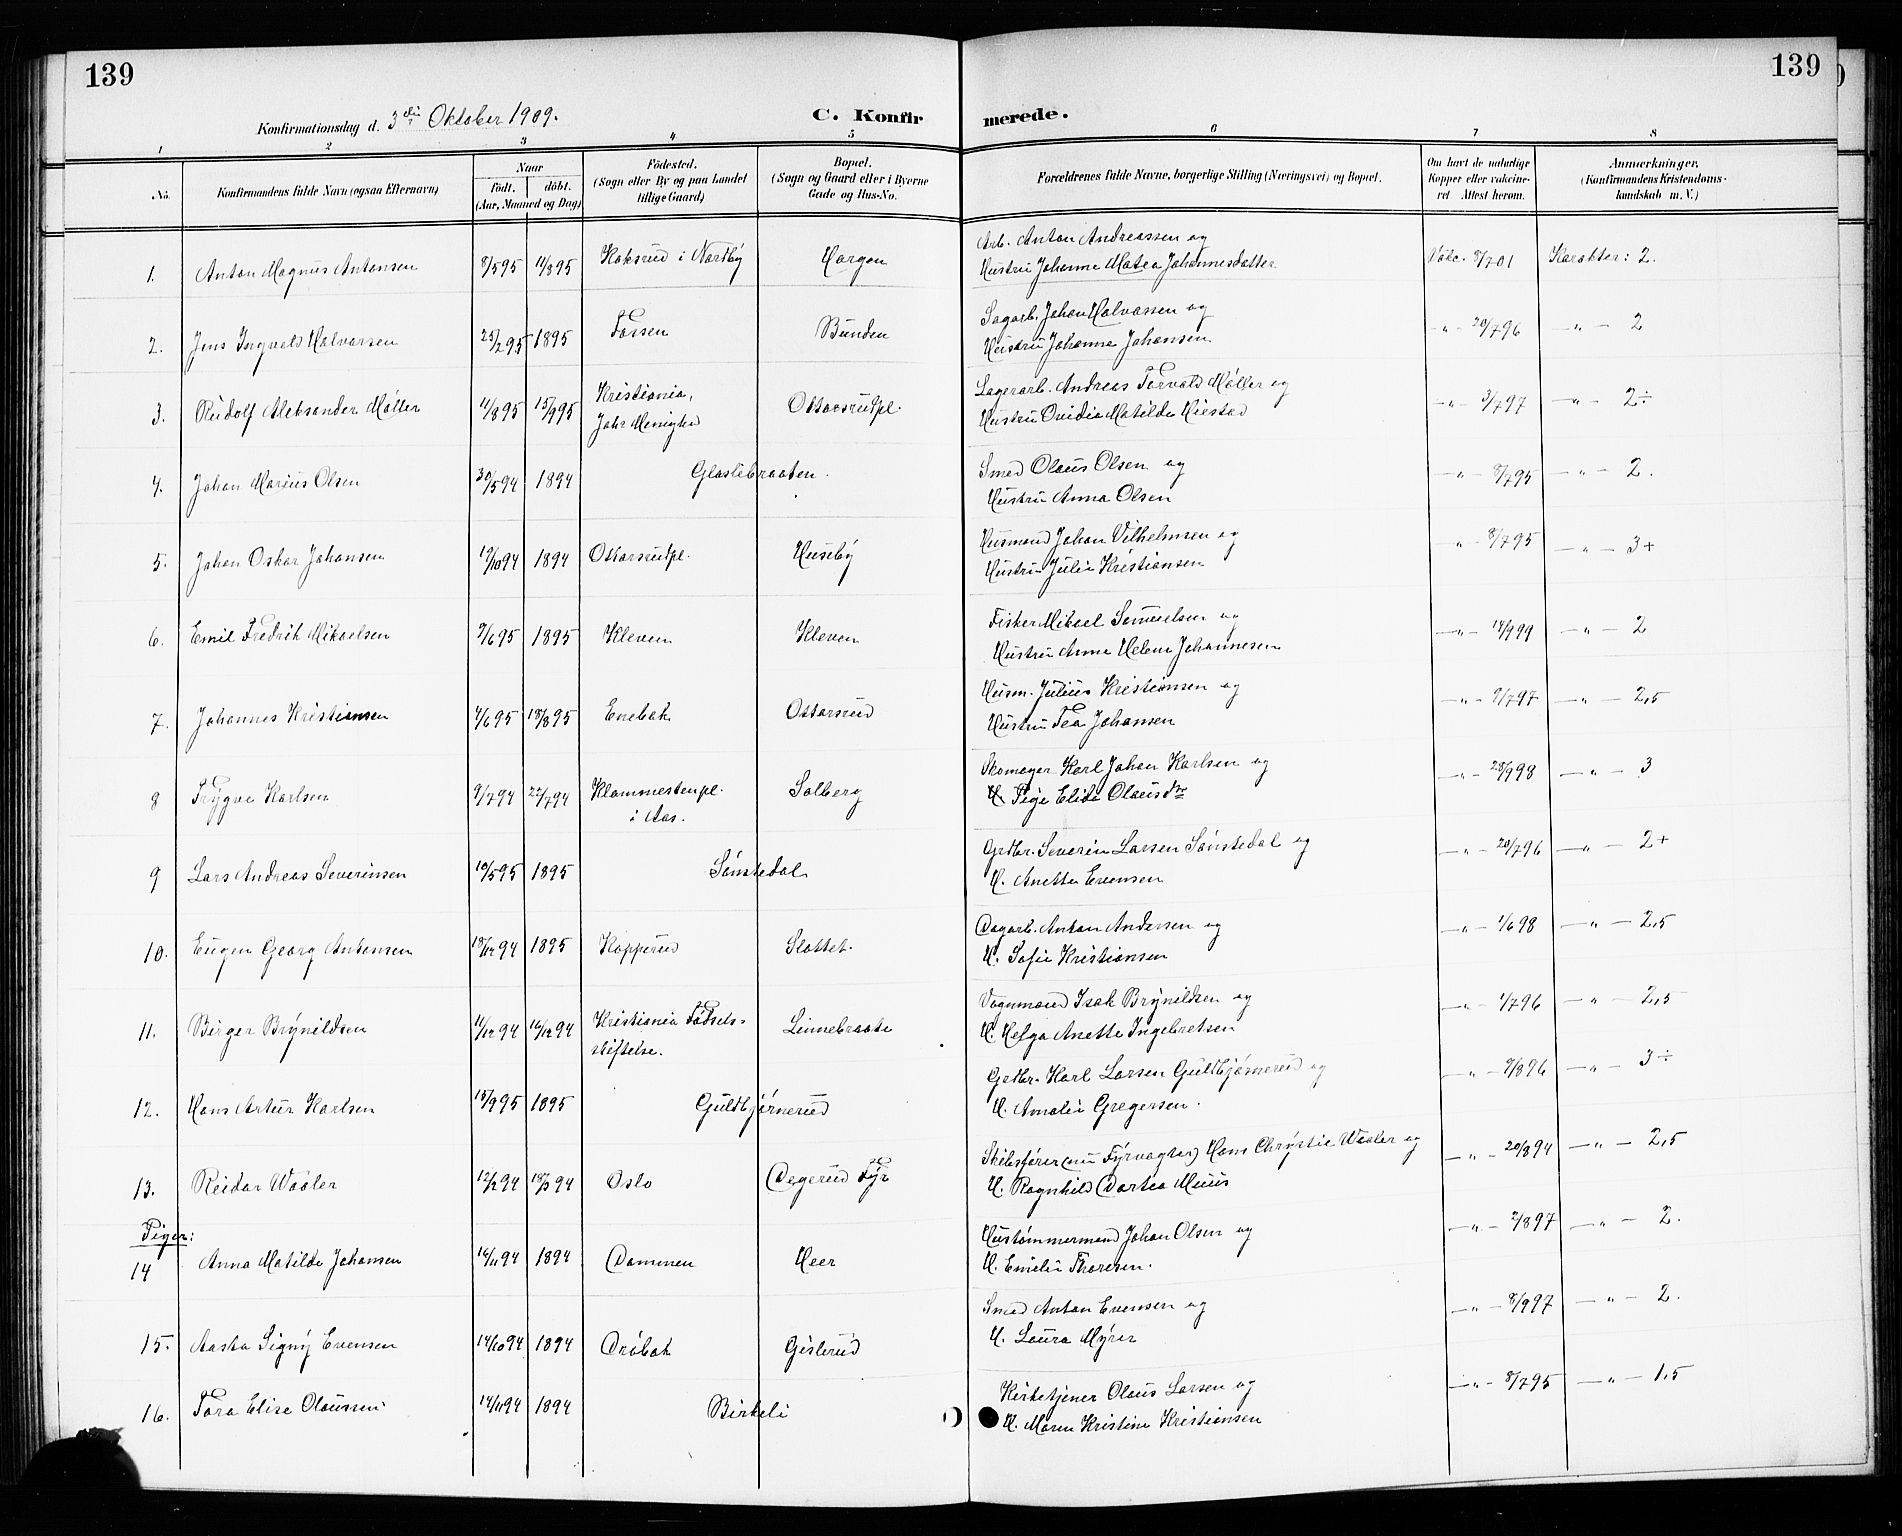 139
139
Konfirmationsdag d. 3die Oktober 1909.
C. Konfirmerede.
1 2 3 4 5 6 7 8
No.
Konfirmandens fulde Navn (ogsaa Efternavn)
Naar
født. døbt.
(Aar, Maaned og Dag)
Fødested.
(Sogn eller By og paa Landet
tillige Gaard)
Bopæl.
(Sogn og Gaard eller i Byerne
Gade og Hus-No.
Forældrenes fulde Navne, borgerlige Stilling (Næringsvei) og Bopæl.
Om havt de naturlige
Kopper eller vakcine-
ret. Attest herom.
Anmærkninger.
(Konfirmandens Kristendoms-
kundskab m. V.)
1. Anton Magnus Antonsen 8/5 95 11/8 95 Koksrud i Nordby Horgen Arb. Anton Andreassen og Vakc. 8/7 01 Karakter: 2.
Hustru Johanne Matea Johannesdatter
2. Jens Ingvald Halvorsen 25/2 95 1895 Fossen Bunden Sagarb. Johan Halvorsen og -„- 20/7 96 -„- 2
Hustru Johanna Johansen
3. Rudolf Aleksander Møller 11/8 95 15/9 95 Kristiania, Ottarsrudpl. Lagerarb. Andreas Torvald Møller og -„- 3/7 97 -„- 2÷
Joh's Menighed Hustru Ovidia Matilde Miestad
4. Johan Marius Olsen 30/5 94 1894 Glaslibraaten. Smed Olaus Olsen og -„- 8/7 95 -„- 2.
Hustru Anna Olsen
5. Johan Oskar Johansen 19/10 94 1894 Ottarsrudpl. Huseby Husmand Johan Vilhelmsen og -„- 8/7 95 -„- 3+
Hustru Julie Kristiansen
6. Emil Fredrik Mikaelsen 9/6 95 1895 Kleven Kleven Fisker Mikael Samuelsen og -„- 18/9 99 -„- 2
Hustru Anna Helene Johannesen
7. Johannes Kristiansen 4/6 95 18/8 95 Enebak Ottarsrud Husm. Julius Kristiansen og -„- 9/7 97 -„- 2,5
Hustru Tea Johansen
8 Trygve Karlsen 9/7 94 22/7 94 Klommestenpl. Solberg Skomager Karl Johan Karlsen og -„- 28/9 98 -„- 3
i Aas. Pige Elida Olausdtr
9 Lars Andreas Severinsen 10/5 95 1895 Sønstedal Grdbr. Severin Larsen Sønstedal og -„- 20/7 96 -„- 2+
H. Anette Evensen
10. Eugen Georg Antonsen 18/12 94 1895 Kopperud Slottet. Dagarb. Anton Andersen og -„- 1/6 98 -„- 2,5
H. Sofie Kristiansen
11. Birger Brynildsen 11/12 94 16/12 94 Kristiania Fødsels= Linnebraate Vognmand Isak Brynildsen og -„- 1/7 96 -„- 2,5
stiftelse. H. Helga Anette Ingebretsen
12. Hans Artur Karlsen 15/9 95 1895 Guldbjørnerud Grdbr. Karl Larsen Guldbjørnerud og -„- 9/8 96 -„- 3÷
H. Amalie Gregersen.
13. Reidar Waaler 12/2 94 18/3 94 Oslo Degerud Fyr Skibsfører (nu Fyrvogter) Hans Chrystie Waaler og -„- 20/8 94 -„- 2,5
H. Ragnhild Dortea Muus
Piger:
14 Anna Matilde Johansen 16/11 94 1894 Dammen Heer Hustømmermand Johan Olsen og -„- 2/8 97 -„- 2.
H. Emilie Thoresen.
15. Aasta Signy Evensen 14/10 94 1894 Drøbak Gislerud Smed Anton Evensen og -„- 8/9 97 -„- 2.
H. Laura Myrer
16. Tora Elise Olaussen 14/11 94 1894 Birkeli Kirketjener Olaus Larsen og -„- 8/7 95 -„- 1,5
H. Maren Kristine Kristiansen